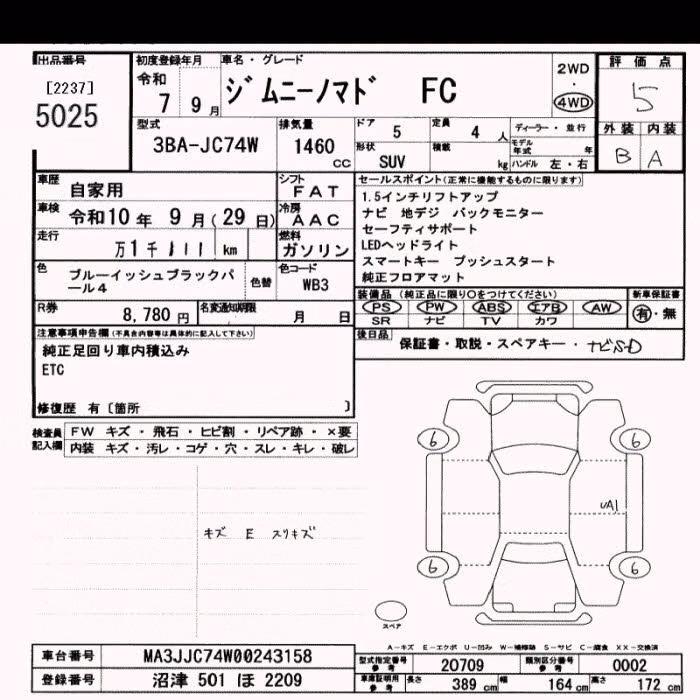 出品番号
[2237]
5025
初度登録年月
令和
7 9 月
車名・グレード
ジムニーノマド FC
2WD
・
4WD
評価点
5
外装 内装
B A
型式
3BA-JC74W
排気量
1460
cc
ドア
5
定員
4 人
ディーラー・並行
モデル年式 年
形状
SUV
積載
kg
ハンドル 左・右
車歴
自家用
シフト
FAT
セールスポイント(正常に機能するものに限ります)
1.5インチリフトアップ
ナビ 地デジ バックモニター
セーフティサポート
LEDヘッドライト
スマートキー プッシュスタート
純正フロアマット
車検
令和10 年 9 月(29 日)
冷房
AAC
走行
万1千111 km
燃料
ガソリン
色
ブルーイッシュブラックパ
ール4
色替
色コード
WB3
R券
8,780 円
名変通知期限
月 日
装備品 (純正品に限り○をつけてください)
PS PW ABS エアB AW
SR ナビ TV カワ
新車保証書
有・無
後日品
保証書・取説・スペアキー・ナビSD
注意事項申告欄(不具合内容等は具体的に記入して下さい)
純正足回り車内積込み
ETC
修復歴 有〔箇所 〕
検査員
記入欄
FW キズ・飛石・ヒビ割・リペア跡・×要
内装 キズ・汚レ・コゲ・穴・スレ・キレ・破レ
キズ E スリキズ
6 6
UA1
6 6
スペア
A-キズ E-エクボ U-凹み W-補修跡 S-サビ C-腐食 XX-交換済
車台番号
MA3JJC74W00243158
登録番号
沼津 501 ほ 2209
型式指定番号
参考
20709
類別区分番号
参考
0002
車庫証明用
参考
長さ 389 cm 幅 164 cm 高さ 172 cm